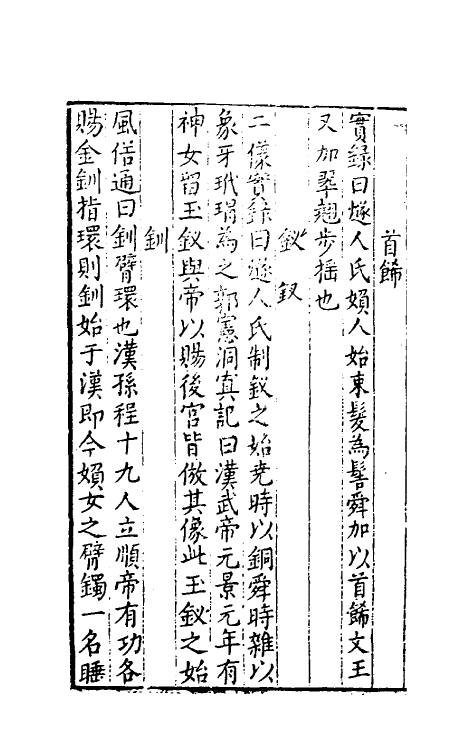 首餙
實録曰燧人氏媍人始束髮為髻舜加以首餙文王
又加翠翹步揺也
釵釵
二儀實録曰燧人氏制釵之始尭時以銅舜時雜以
象牙玳瑁為之郭憲洞㝠記曰漢武帝元景元年有
神女留玉釵與帝以賜後宫皆倣其像此玉釵之始
釧
風俗通曰釧臂環也漢孫程十九人立順帝有功各
賜金釧指環則釧始于漢即今媍女之臂鐲一名䐃